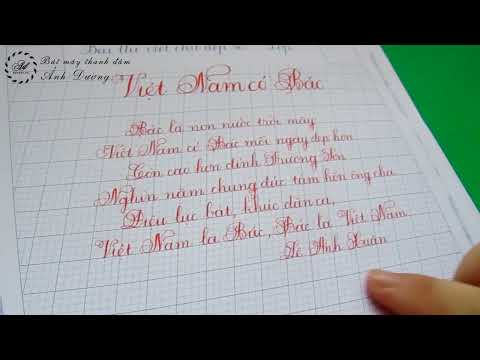 Bút máy thanh đậm
Ánh Dương
Bài thi viết chữ đẹp
Việt Nam có Bác
Bác là non nước trời mây
Việt Nam có Bác mỗi ngày đẹp hơn
Còn cao hơn đỉnh Trường Sơn
Nghìn năm chung đúc tâm hồn ông cha
Điệu lục bát, khúc dân ca,
Việt Nam là Bác, Bác là Việt Nam.
Lê Anh Xuân